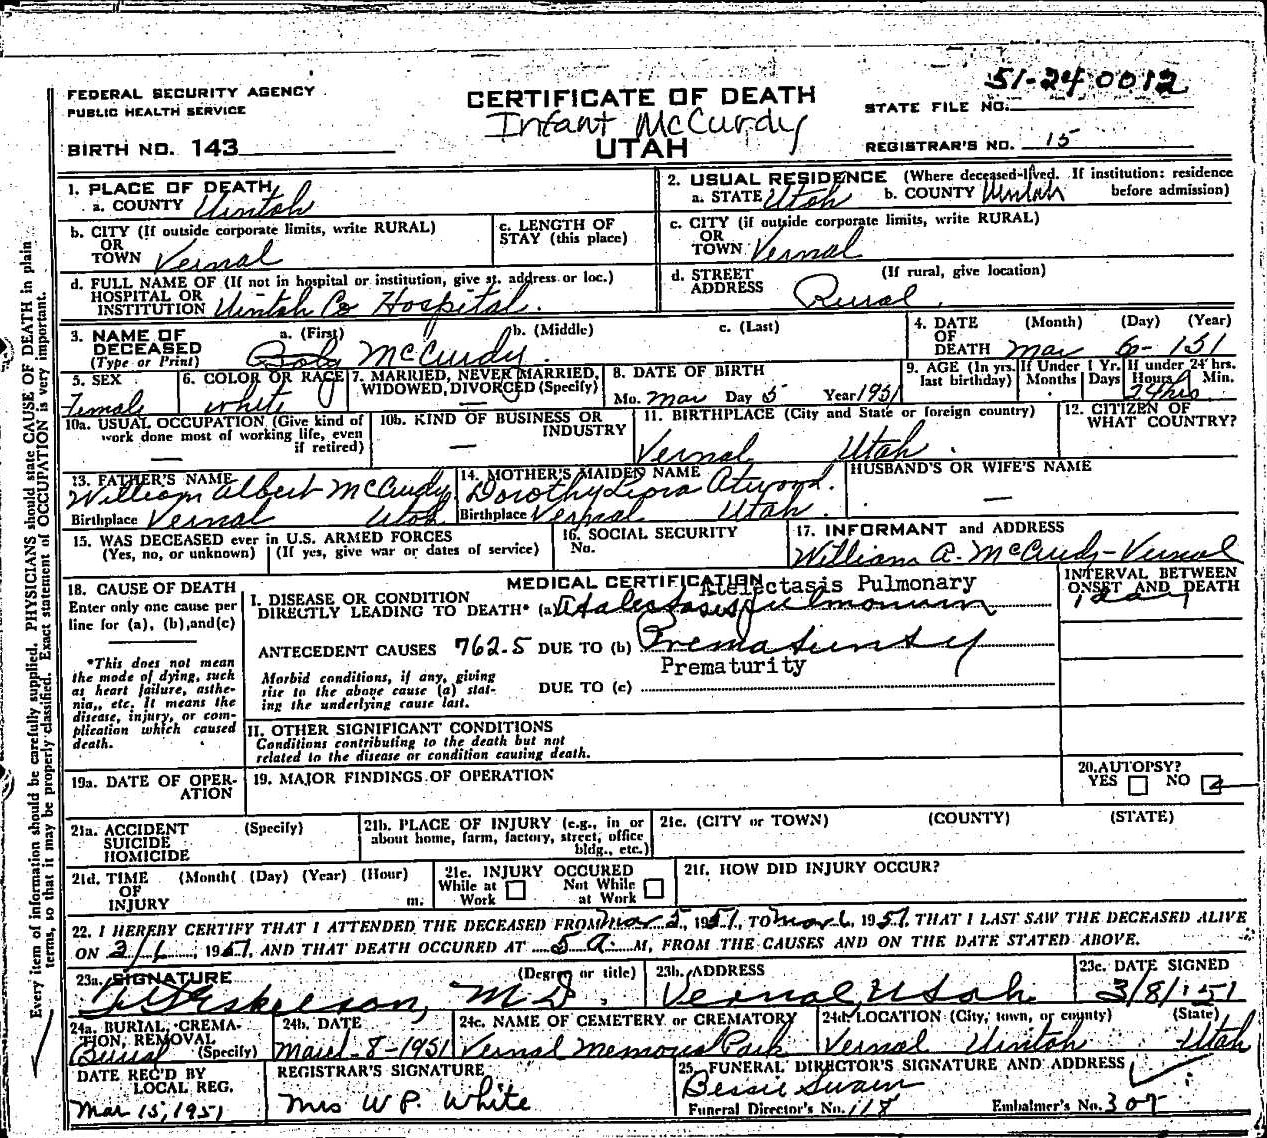 51-24 0012
FEDERAL SECURITY AGENCY
PUBLIC HEALTH SERVICE
CERTIFICATE OF DEATH
STATE FILE NO.
Infant McCurdy
BIRTH NO. 143
UTAH
REGISTRAR'S NO. 15
1. PLACE OF DEATH
a. COUNTY Uintah
2. USUAL RESIDENCE (Where deceased lived. If institution: residence before admission)
a. STATE Utah b. COUNTY Uintah
b. CITY (If outside corporate limits, write RURAL)
OR
TOWN Vernal
c. LENGTH OF
STAY (this place)
c. CITY (if outside corporate limits, write RURAL)
OR
TOWN Vernal
d. FULL NAME OF (If not in hospital or institution, give st. address or loc.)
HOSPITAL OR
INSTITUTION Uintah Co Hospital.
d. STREET (If rural, give location)
ADDRESS Rural.
3. NAME OF a. (First) b. (Middle) c. (Last)
DECEASED
(Type or Print) Baby McCurdy.
4. DATE (Month) (Day) (Year)
OF
DEATH Mar 6-151
5. SEX
Female
6. COLOR OR RACE
white
7. MARRIED, NEVER MARRIED,
WIDOWED, DIVORCED (Specify)
—
8. DATE OF BIRTH
Mo. Mar Day 5 Year 1951
9. AGE (In yrs. last birthday)
If Under 1 Yr.
Months Days
If under 24 hrs.
Hours Min.
24 hrs.
10a. USUAL OCCUPATION (Give kind of
work done most of working life, even
if retired)
—
10b. KIND OF BUSINESS OR
INDUSTRY
—
11. BIRTHPLACE (City and State or foreign country)
Vernal Utah.
12. CITIZEN OF
WHAT COUNTRY?
13. FATHER'S NAME
William Albert McCurdy
Birthplace Vernal Utah
14. MOTHER'S MAIDEN NAME
Dorothy Atwood.
Birthplace Vernal Utah.
HUSBAND'S OR WIFE'S NAME
—
15. WAS DECEASED ever in U.S. ARMED FORCES
(Yes, no, or unknown) (If yes, give war or dates of service)
16. SOCIAL SECURITY
No.
17. INFORMANT and ADDRESS
William A. McCurdy-Vernal
18. CAUSE OF DEATH
Enter only one cause per
line for (a), (b),and(c)
*This does not mean
the mode of dying, such
as heart failure, asthe-
nia,, etc. It means the
disease, injury, or com-
plication which caused
death.
MEDICAL CERTIFICATION
Atelectasis Pulmonary
I. DISEASE OR CONDITION
DIRECTLY LEADING TO DEATH* (a) Atalectasis pulmonum
ANTECEDENT CAUSES 762.5 DUE TO (b) Prematurity
Prematurity
Morbid conditions, if any, giving
rise to the above cause (a) stat-
ing the underlying cause last.
DUE TO (c)
INTERVAL BETWEEN
ONSET AND DEATH
1 day
II. OTHER SIGNIFICANT CONDITIONS
Conditions contributing to the death but not
related to the disease or condition causing death.
19a. DATE OF OPER-
ATION
19. MAJOR FINDINGS OF OPERATION
20. AUTOPSY?
YES NO
21a. ACCIDENT (Specify)
SUICIDE
HOMICIDE
21b. PLACE OF INJURY (e.g., in or
about home, farm, factory, street, office
bldg., etc.)
21c. (CITY or TOWN) (COUNTY) (STATE)
21d. TIME (Month( (Day) (Year) (Hour)
OF
INJURY m.
21e. INJURY OCCURED
While at Work Not While at Work
21f. HOW DID INJURY OCCUR?
22. I HEREBY CERTIFY THAT I ATTENDED THE DECEASED FROM Mar 5, 1951, TO Mar 6, 1951 THAT I LAST SAW THE DECEASED ALIVE
ON 3/6, 1951, AND THAT DEATH OCCURED AT 5 A. M, FROM THE CAUSES AND ON THE DATE STATED ABOVE.
23a. SIGNATURE (Degree or title)
M D.
23b. ADDRESS
Vernal, Utah.
23c. DATE SIGNED
3/8/151
24a. BURIAL, CREMA-
TION, REMOVAL
Burial (Specify)
24b. DATE
March-8-1951
24c. NAME OF CEMETERY or CREMATORY
Vernal Memorial Park
24d. LOCATION (City, town, or county) (State)
Vernal Uintah Utah
DATE REC'D BY
LOCAL REG.
Mar 15, 1951
REGISTRAR'S SIGNATURE
Mrs W P. White
25. FUNERAL DIRECTOR'S SIGNATURE AND ADDRESS
Bessie Swain
Funeral Director's No. 118 Embalmer's No. 307
Every item of information should be carefully supplied. PHYSICIANS should state CAUSE OF DEATH in plain
terms, so that it may be properly classified. Exact statement of OCCUPATION is very important.